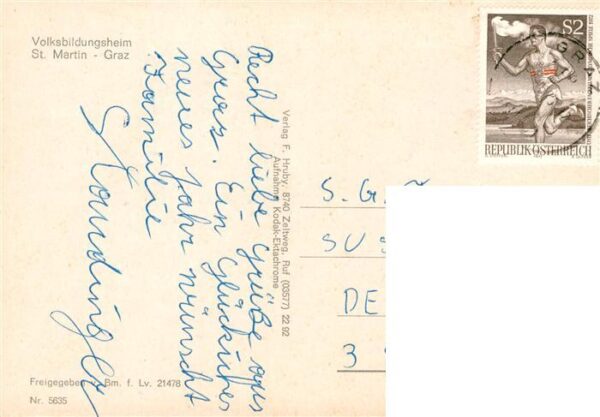 Volksbildungsheim
St. Martin - Graz
Recht liebe Grüße aus
Graz. Ein Glückliches
neues Jahr wünscht
Familie
Verlag F. Hruby, 8740 Zeltweg, Ruf (03577) 22 92
Aufnahme Kodak-Ektachrome
Freigegeben v. Bm. f. Lv. 21478
Nr. 5635
S2
REPUBLIK ÖSTERREICH
GRAZ
S. G.
SU
DE
3